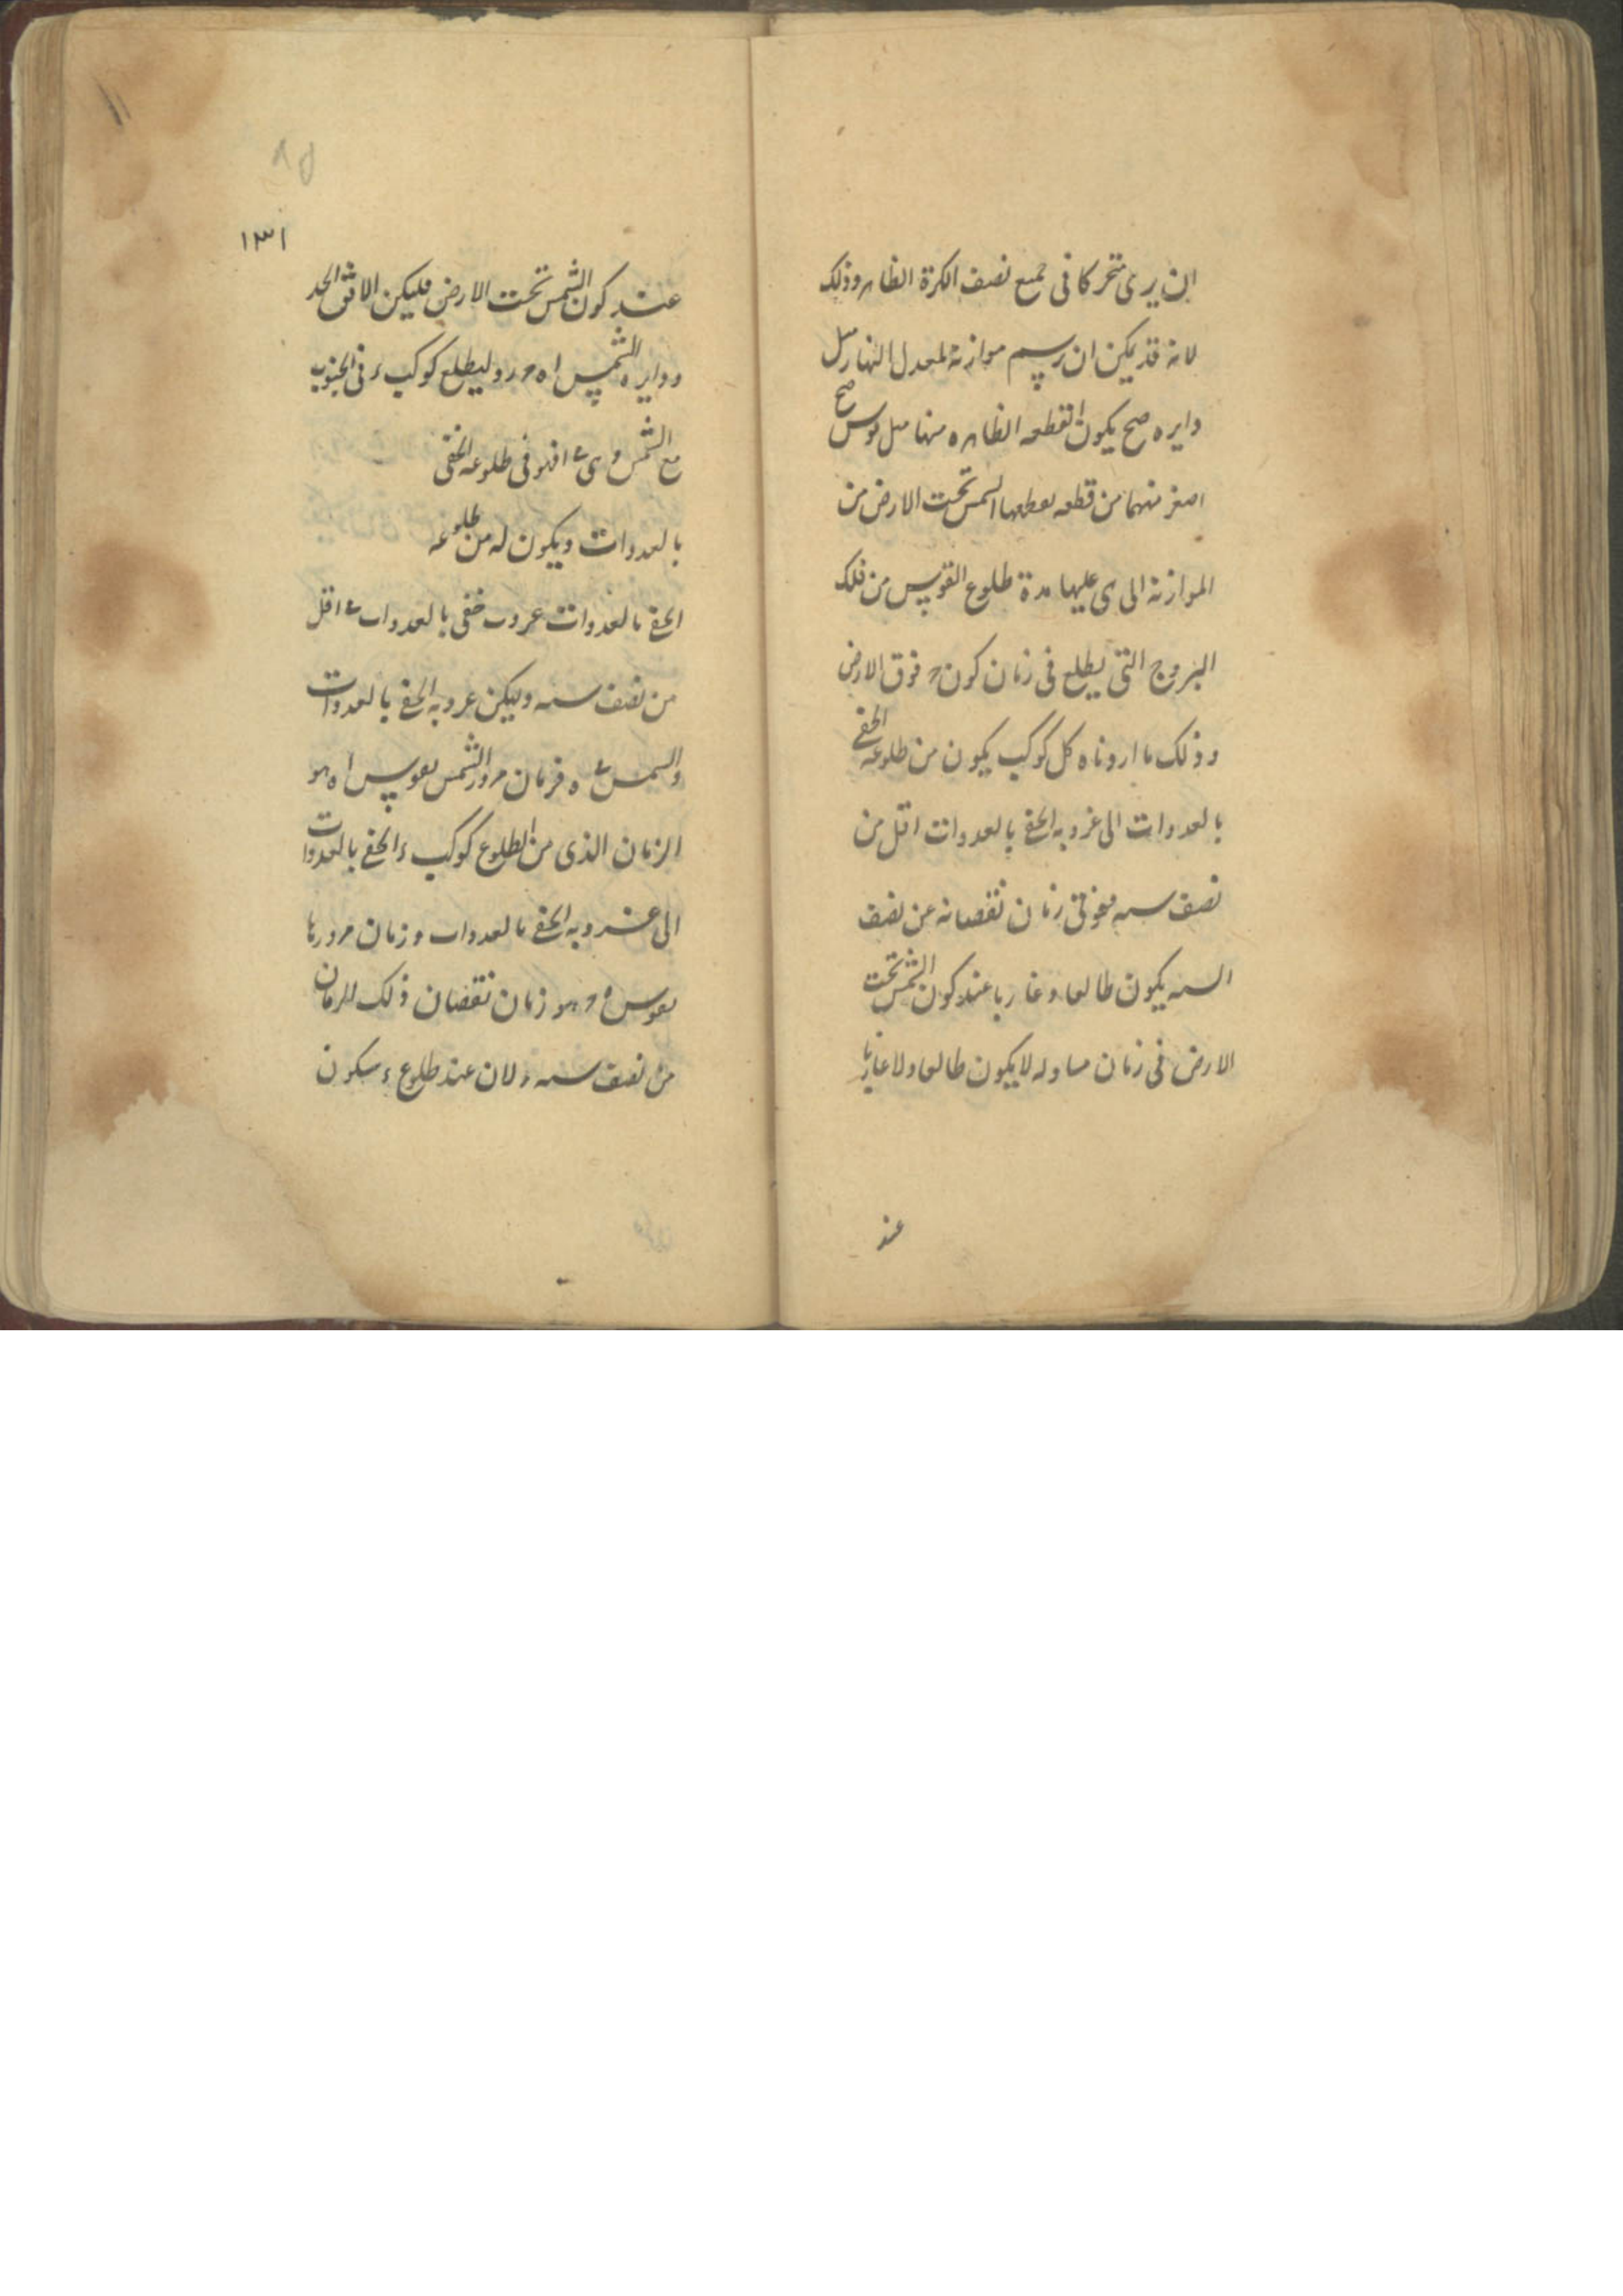 ان يرى متحركا فى جميع نصف الكرة الظاهر وذلك
لانه قد يمكن ان يرسم موازية لمعدل النهار مثل
دايره صح يكون القطعه الظاهره منها مثل قوس صح
اصغر منهما من قطعه يقطعها الشمس تحت الارض من
الموازية التى هى عليها مدة طلوع القوس من فلك
البروج التى يطلع فى زمان كون فوق الارض
وذلك ما اردناه كل كوكب يكون من طلوعه الخفى
بالغدوات الى غروبه الخفى بالغدوات اقل من
نصف سنه ففى زمان نقصانه عن نصف
السنه يكون طالعا وغاربا عند كون الشمس تحت
الارض فى زمان مساو له لا يكون طالعا ولا غاربا
عند
١٣١
عند كون الشمس تحت الارض فليكن الافق
ودايره الشمس وليطلع كوكب ء فى الجنوب
مع الشمس وهى فى طلوعه الخفى
بالغدوات ويكون له من طلوعه
الخفى بالغدوات غروب خفى بالغدوات اقل
من نصف سنه وليكن غروبه الخفى بالغدوات
والشمس ه فزمان مرور الشمس بقوس ا ه هو
الزمان الذى من طلوع كوكب ء الخفى بالغدوات
الى غروبه الخفى بالغدوات وزمان مرورها
بقوس هو زمان نقصان ذلك الزمان
من نصف سنه ولان عند طلوع ء يكون